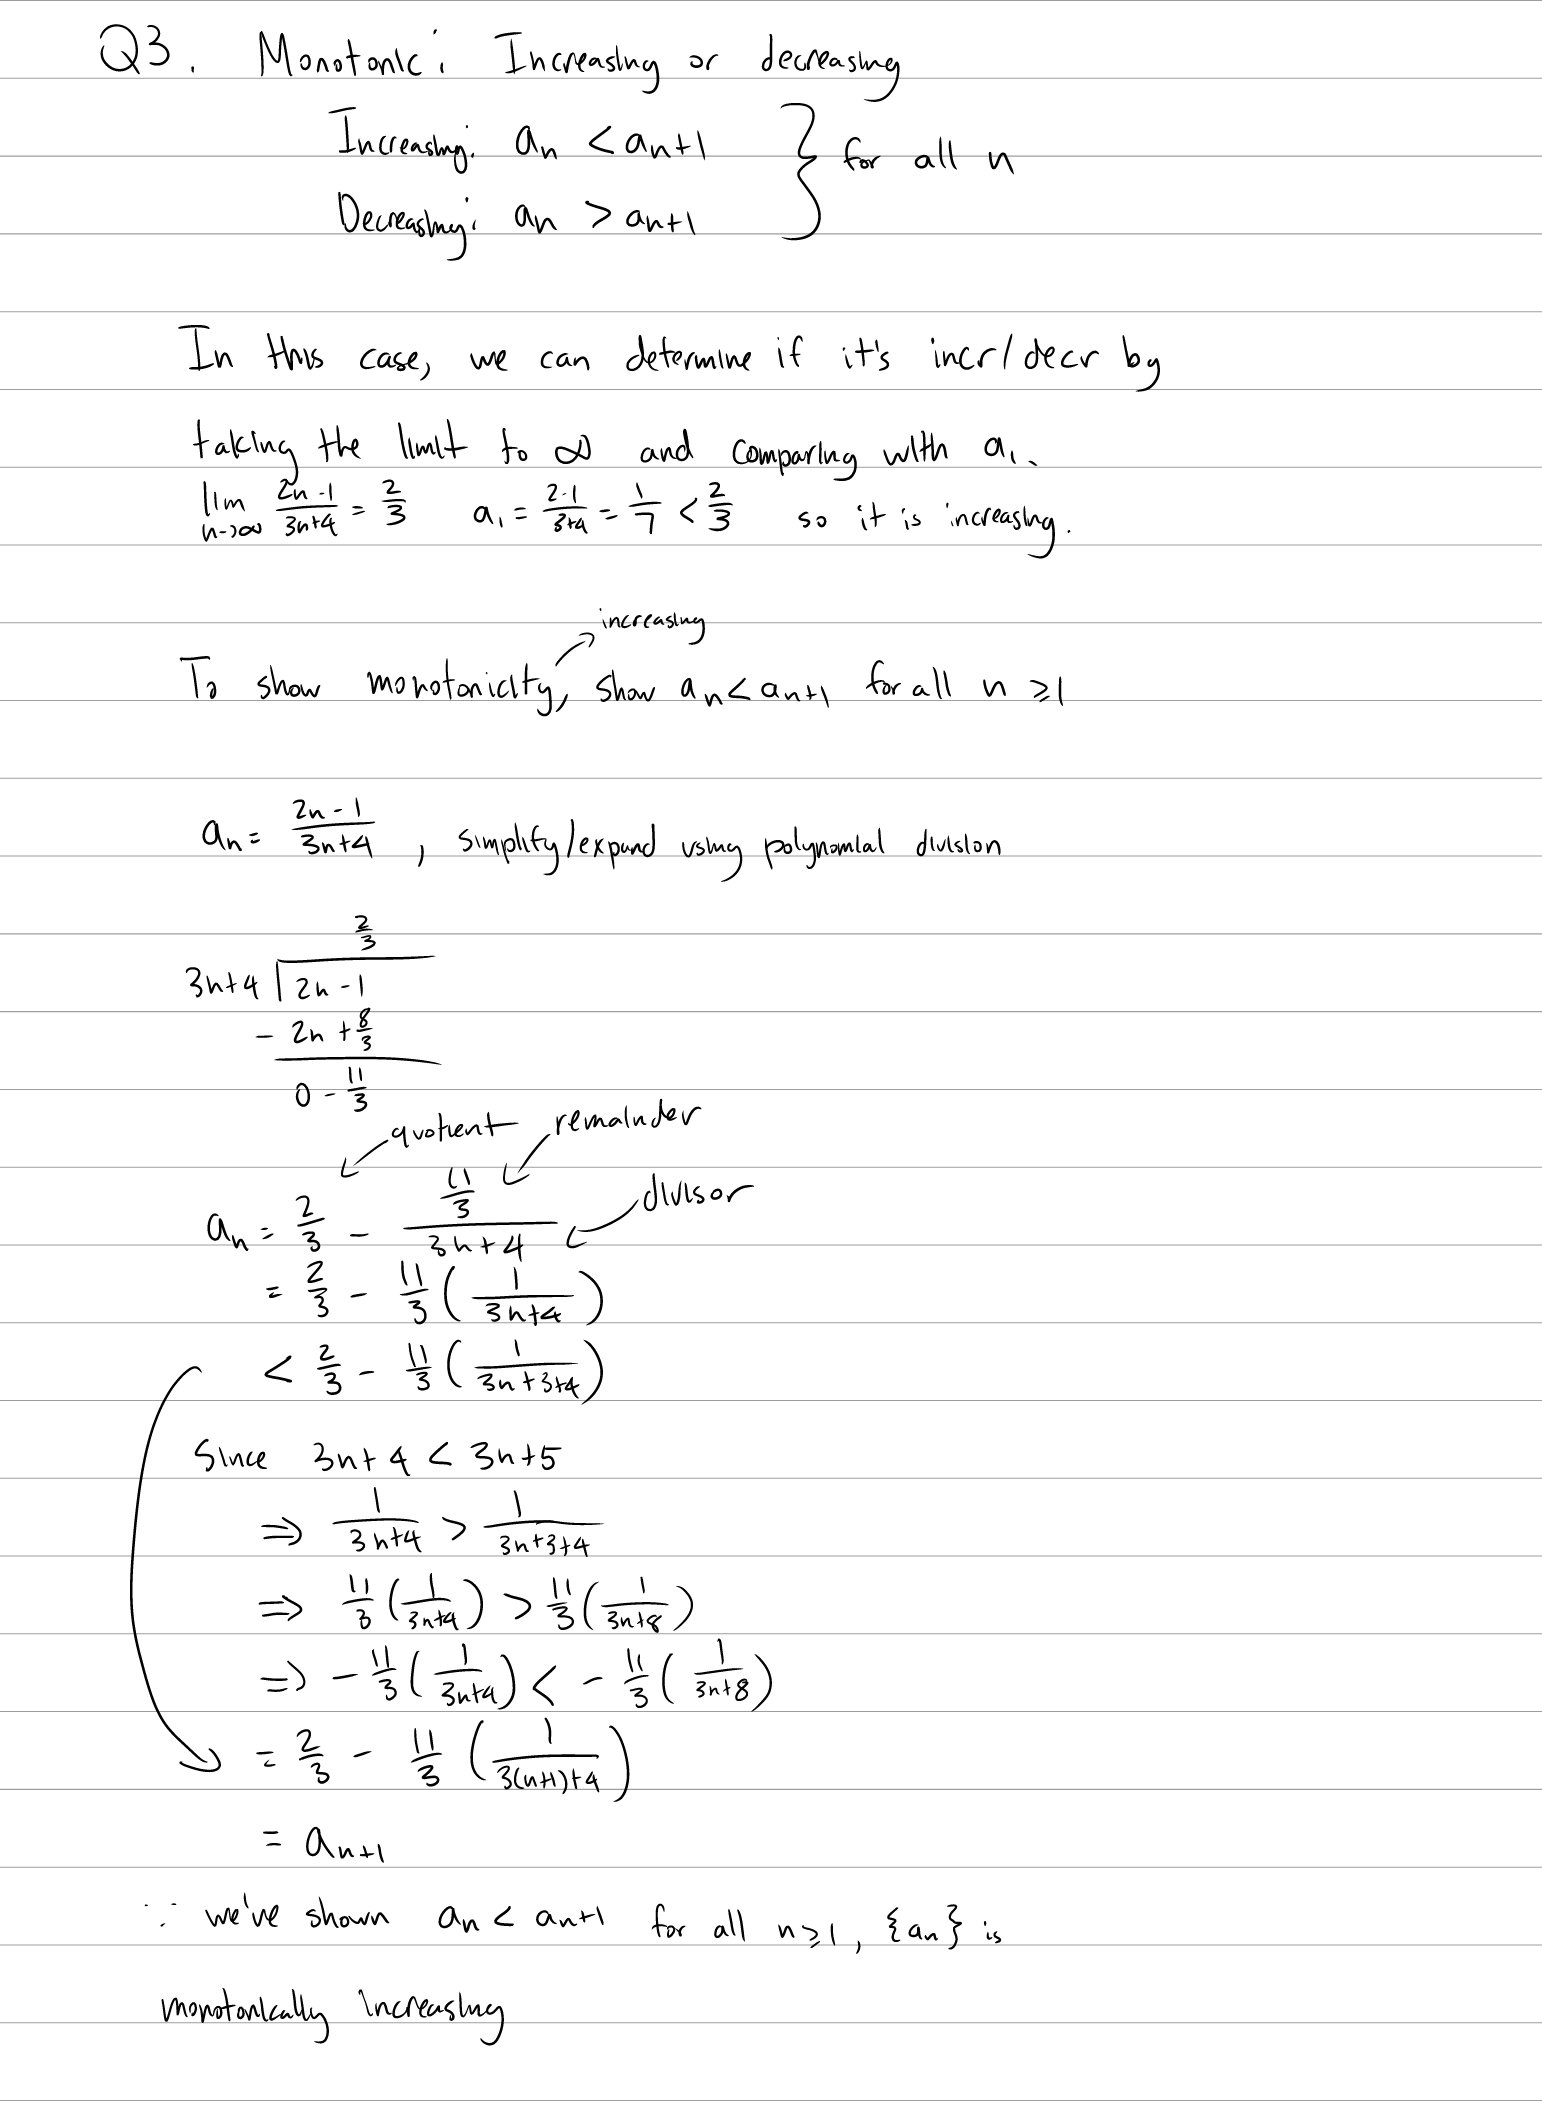 Q3. Monotonic: Increasing or decreasing
Increasing: an < an+1 } for all n
Decreasing: an > an+1
In this case, we can determine if it's incr/decr by
taking the limit to ∞ and comparing with a1.
lim n->∞ (2n-1)/(3n+4) = 2/3 a1 = (2-1)/(3+4) = 1/7 < 2/3 so it is increasing.
increasing
To show monotonicity, show an < an+1 for all n ≥ 1
an = (2n-1)/(3n+4), simplify/expand using polynomial division
2/3
3n+4 | 2n - 1
- 2n + 8/3
0 - 11/3
quotient remainder
divisor
an = 2/3 - (11/3)/(3n+4)
= 2/3 - 11/3 (1/(3n+4))
< 2/3 - 11/3 (1/(3n+3+4))
Since 3n+4 < 3n+5
⇒ 1/(3n+4) > 1/(3n+3+4)
⇒ 11/3 (1/(3n+4)) > 11/3 (1/(3n+8))
⇒ - 11/3 (1/(3n+4)) < - 11/3 (1/(3n+8))
= 2/3 - 11/3 (1/(3(n+1)+4))
= an+1
∵ we've shown an < an+1 for all n ≥ 1, {an} is
monotonically increasing